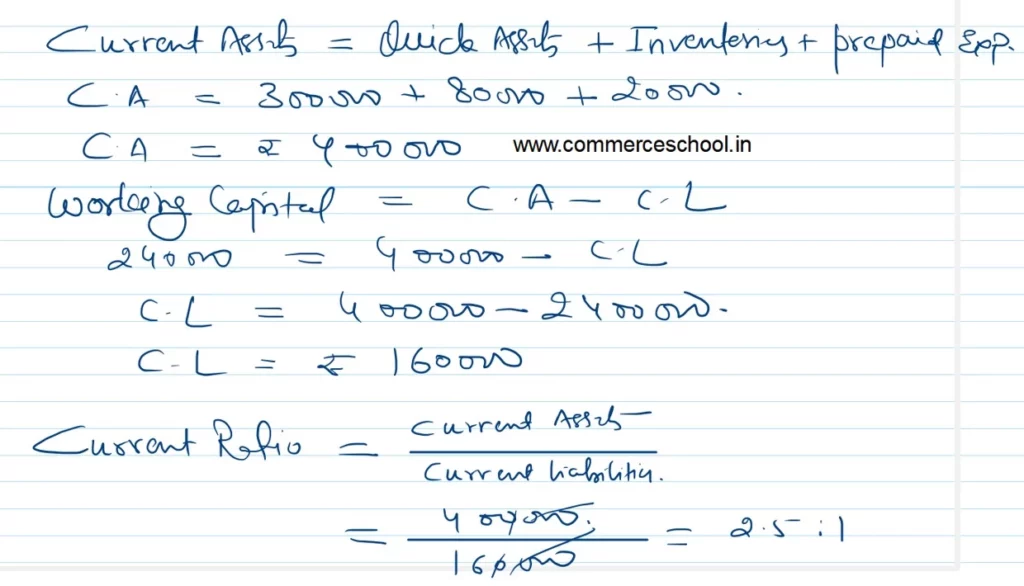 Current Assets = Quick Assets + Inventory + prepaid Exp.
C.A = 300000 + 80000 + 20000.
CA = ₹ 400000 www.commerceschool.in
Working Capital = C.A - C.L
240000 = 400000 - C.L
C.L = 400000 - 240000.
C-L = ₹ 160000
Current Ratio = Current Assets / Current liabilities.
= 400000 / 160000 = 2.5 : 1